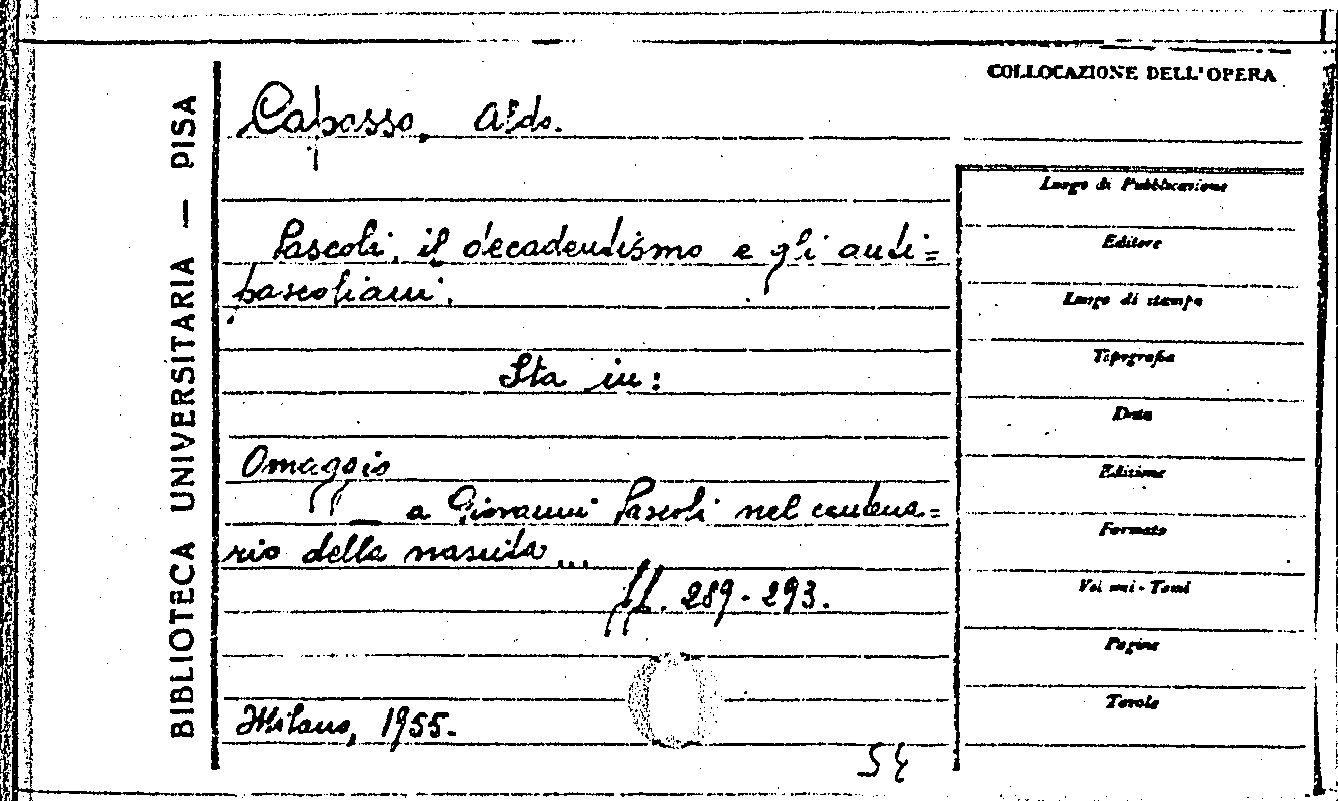 COLLOCAZIONE DELL'OPERA
BIBLIOTECA UNIVERSITARIA — PISA
Capasso, Aldo.
Pascoli, il decadentismo e gli anti=
pascoliani.
Sta in:
Omaggio
a Giovanni Pascoli nel centena=
rio della nascita...
pp. 289-293.
Milano, 1955.
Luogo di Pubblicazione
Editore
Luogo di stampa
Tipografia
Data
Edizione
Formato
Volumi - Tomi
Pagine
Tavole